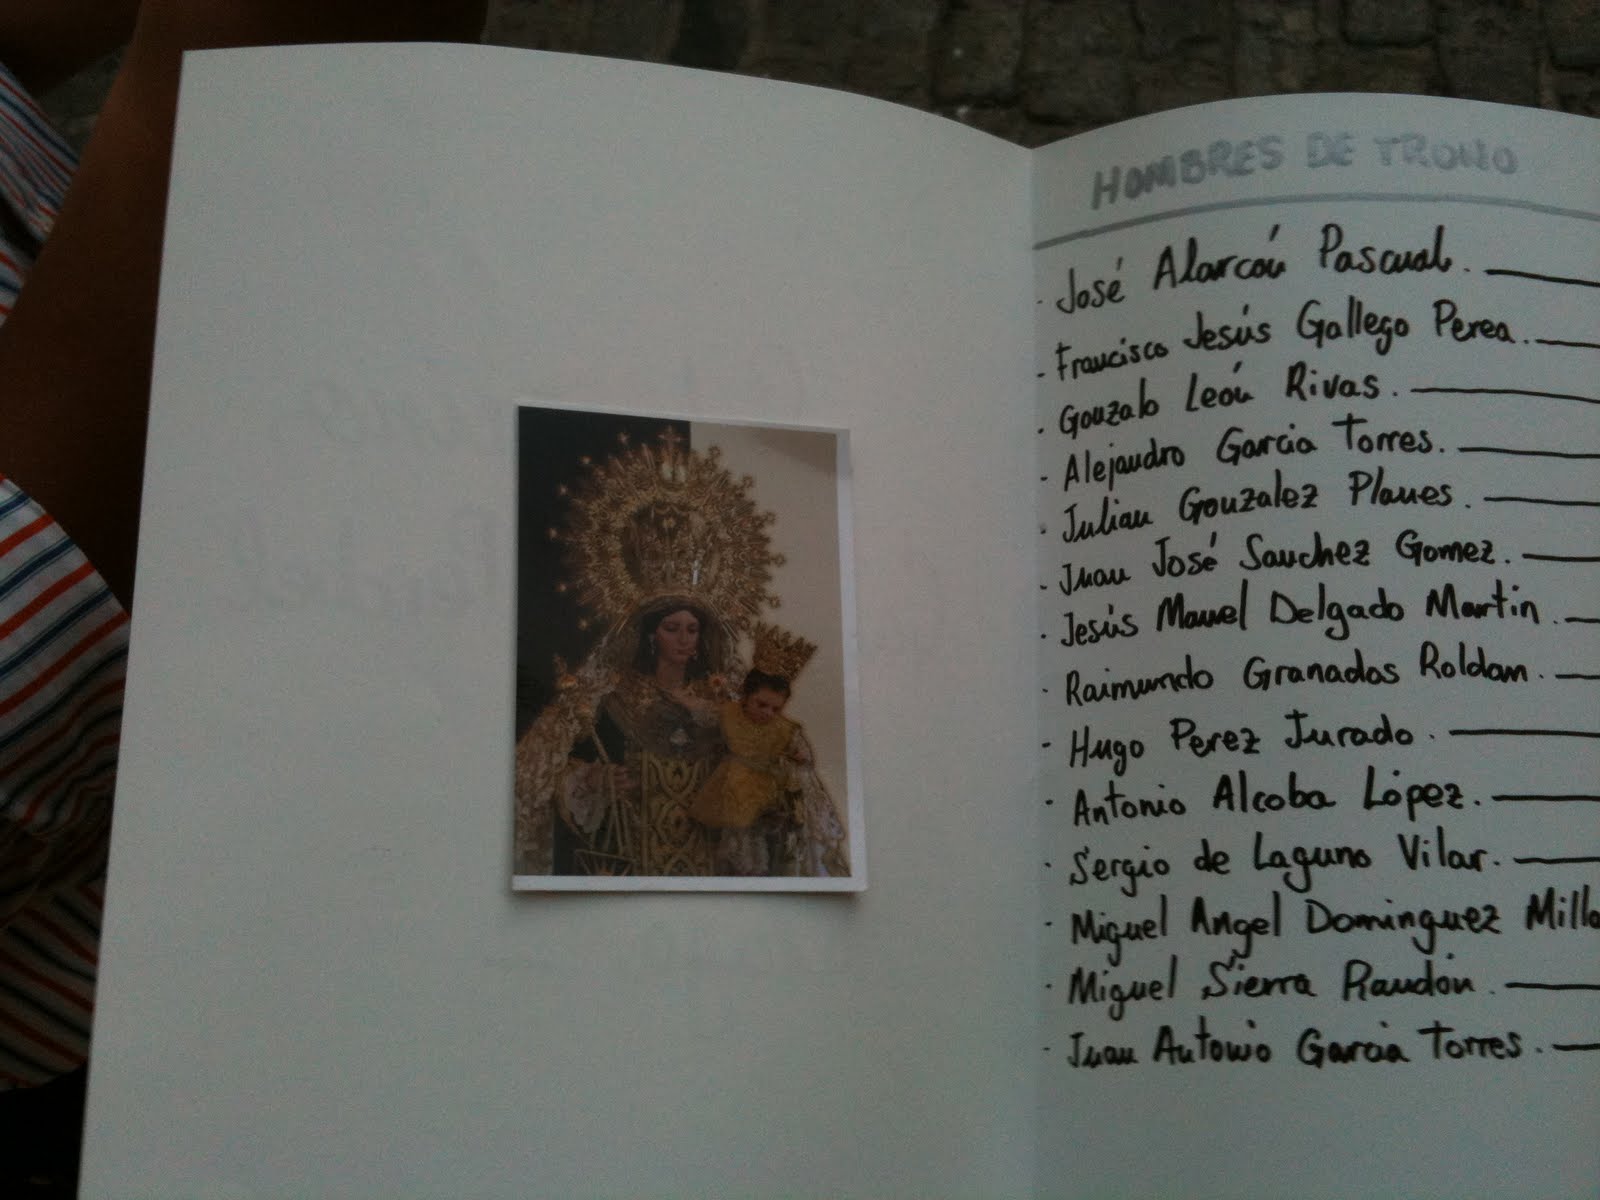 HOMBRES DE TRONO
· José Alarcón Pascual.
- Francisco Jesús Gallego Perea.
· Gonzalo León Rivas.
- Alejandro Garcia Torres.
· Julian Gonzalez Planes.
- Juan José Sanchez Gomez.
· Jesús Manuel Delgado Martin.
· Raimundo Granados Roldan.
- Hugo Perez Jurado.
· Antonio Alcoba López.
· Sergio de Laguno Vilar.
· Miguel Angel Dominguez
· Miguel Sierra Randón.
· Juan Antonio Garcia Torres.